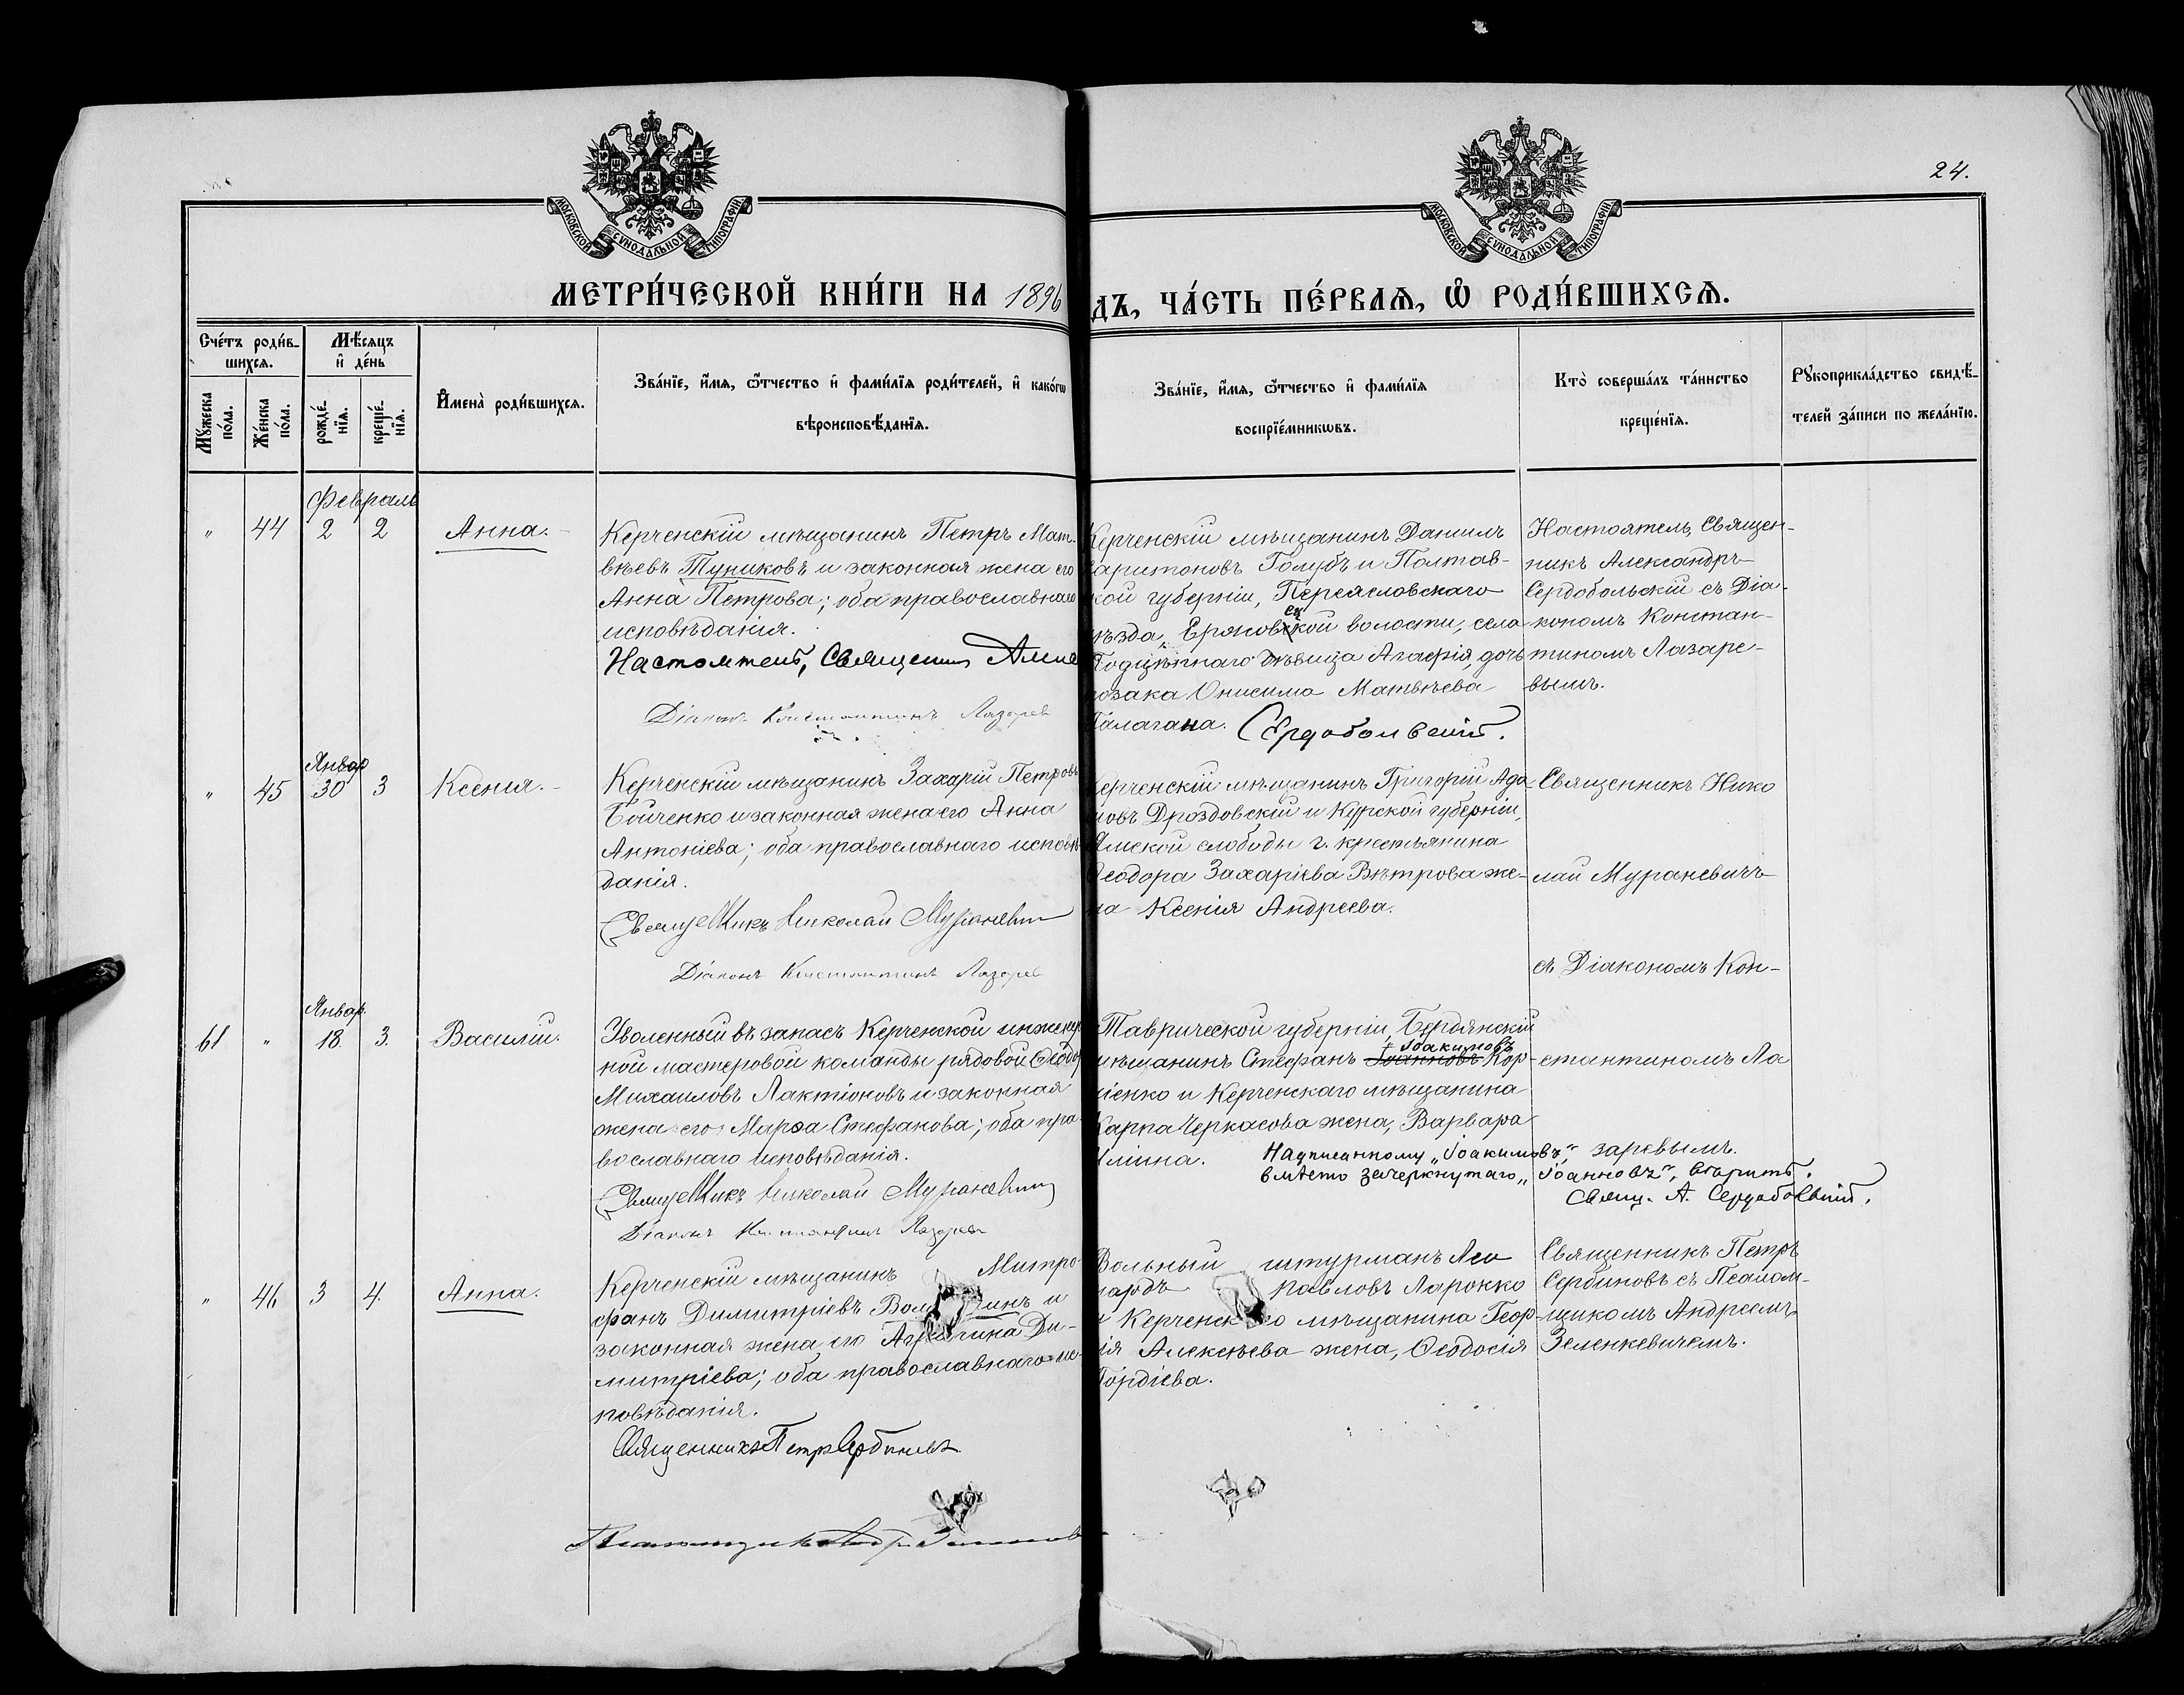 24.
МОСКОВСКОЙ СѴНОДАЛЬНОЙ ТИПОГРАФІИ
МОСКОВСКОЙ СѴНОДАЛЬНОЙ ТИПОГРАФІИ
МЕТРИ́ЧЕСКОЙ КНИ́ГИ НА 1896
ДЪ, ЧА́СТЬ ПЕ́РВАѦ, Ѽ РОДИ́ВШИХСѦ.
Сче́тъ роди́в-
шихсѧ.
Мꙋ́жеска по́ла.
Же́нска по́ла.
Мѣ́сѧцъ и҆ де́нь
рожде́-нїѧ.
креще́-нїѧ.
И҆мена̀ роди́вшихсѧ.
Зва́нїе, и҆́мѧ, ѻ҆́тчество и҆ фами́лїѧ роди́телей, и҆ како́гѡ
вѣроисповѣ́данїѧ.
Зва́нїе, и҆́мѧ, ѻ҆́тчество и҆ фами́лїѧ
воспрїе́мникѡвъ.
Кто̀ соверша́лъ та́инство
креще́нїѧ.
Рꙋкоприкла́дство свидѣ́-
телей за́писи по жела́нїю.
Февраль
" 44 2 2 Анна.
Керченскій мѣщанинъ Петръ Мат-
вѣевъ Туниковъ и законная жена его
Анна Петрова; оба православнаго
исповѣданія.
Настоятель, Священ
Діаконъ Константинъ Лазарев
Керченскій мѣщанинъ Даніилъ
Харитоновъ Голубъ и Полтав-
кой губерніи, Переясловскаго
уѣзда, волости, села
дѣвица Агафія, дочь
козака Онисима Матвѣева
Галагана. Сердобольскій.
Настоятель, Священ-
никъ Александръ
Сердобольскій съ Діа-
кономъ Констан-
тиномъ Лазаре-
вымъ.
Январ
" 45 30 3 Ксенія.
Керченскій мѣщанинъ Захарій Петровъ
Бойченко и законная жена его Анна
Антоніева; оба православнаго исповѣ-
данія.
Священникъ Николай Мураневич
Діаконъ Константинъ Лазарев
Керченскій мѣщанинъ Григорій Ада-
мовъ Дроздовскій и Курской губерніи,
Ямской слободы г. крестьянина
Ѳеодора Захаріева Вѣтрова же-
на Ксенія Андреева.
Священникъ Нико
лай Мураневичъ
съ Діакономъ Кон-
Январ.
61 " 18 3. Василій.
Уволенный въ запасъ Керченской инженер
ной мастеровой команды рядовой Ѳеодор
Михаиловъ Лактіоновъ и законная
жена его Марѳа Стефанова; оба пра-
вославнаго исповѣданія.
Священникъ Николай Мураневич
Діаконъ Константинъ Лазарев
Таврической губерніи, Бердянскій
Іоакимовъ
мѣщанинъ Стефанъ Іоанновъ Кор-
ніенко и Керченскаго мѣщанина
Карпа Черкасова жена, Варвара
Ильина.
стантиномъ Ла
заревымъ.
Надписанному „Іоакимовъ,"
вмѣсто зачеркнутаго „Іоанновъ", вѣрить.
Свящ. А. Сердобольскій.
" 46 3 4. Анна.
Керченскій мѣщанинъ Митро-
фанъ Димитріевъ и
законная жена его Ди-
митріева; оба православнаго ис-
повѣданія.
Священникъ Петръ Сербиновъ
Вольный штурманъ Лео
нардъ Павловъ Ларокко
и Керченскаго мѣщанина Геор-
гія Алексѣева жена, Ѳеодосія
Гордіева.
Священникъ Петръ
Сербиновъ съ Псалом-
щикомъ Андреемъ
Зеленкевичемъ.